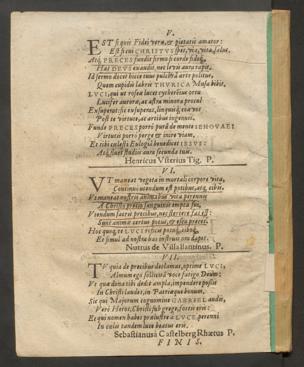 V.
EST si quis Fidei veræ, & pietatis amator:
Est si cui CHRISTUS spes, via, vita, salus.
Atq; PRECES fundit firmo si corde fideq;
Has DEUS exaudit, nec levis aura rapit.
Id sermo docet hicce tuus pulchrâ arte politus,
Quem cupido labris THURICA Musa bibit.
LUCI, qui ut rosea lucet
Lucifer aurora, ac astra minora procul
Exsuperat: sic exuperas,
Post te virtute, ac artibus ingenuis.
Funde PRECES porrò purâ de mente IEHOVAE:
Virtutis porrò perge & inire viam.
Et tibi cælesti Eulogiâ benedicet IESUS:
Atq; fluet studiis aura secunda tuis.
Henricus Vlsterius Tig. P.
VI.
UT maneat vegeta in mortali corpore vita,
Continuò utendum est potibus, atq; cibis.
Ut maneat nostris animabus vita perennis
A Christo precio sanguinis empta sui,
Utendum sacris precibus, nec
Sunt animæ certus potus, & esca preces.
Hoc quoq; te LUCI
Et simul ad nostra has instruis ore dapes.
Nutrus de Villa llantinus. P.
VII.
TU quia de precibus declamas, optime LUCI,
Almum ego sollicitâ voce fatigo Deum:
Ut quæ dona tibi dedit ampla, impendere possis
In Christi laudes, in Patriæque bonum.
Sic qui Majorum cognomine GABRIEL audis,
Verè Heros, Christi sub grege, fortis eris:
Et qui nomen habes præilustre à LUCE, perenni
In cœlis tandem luce beatus eris.
Sebastianus à Castelberg Rhætus P.
FINIS.